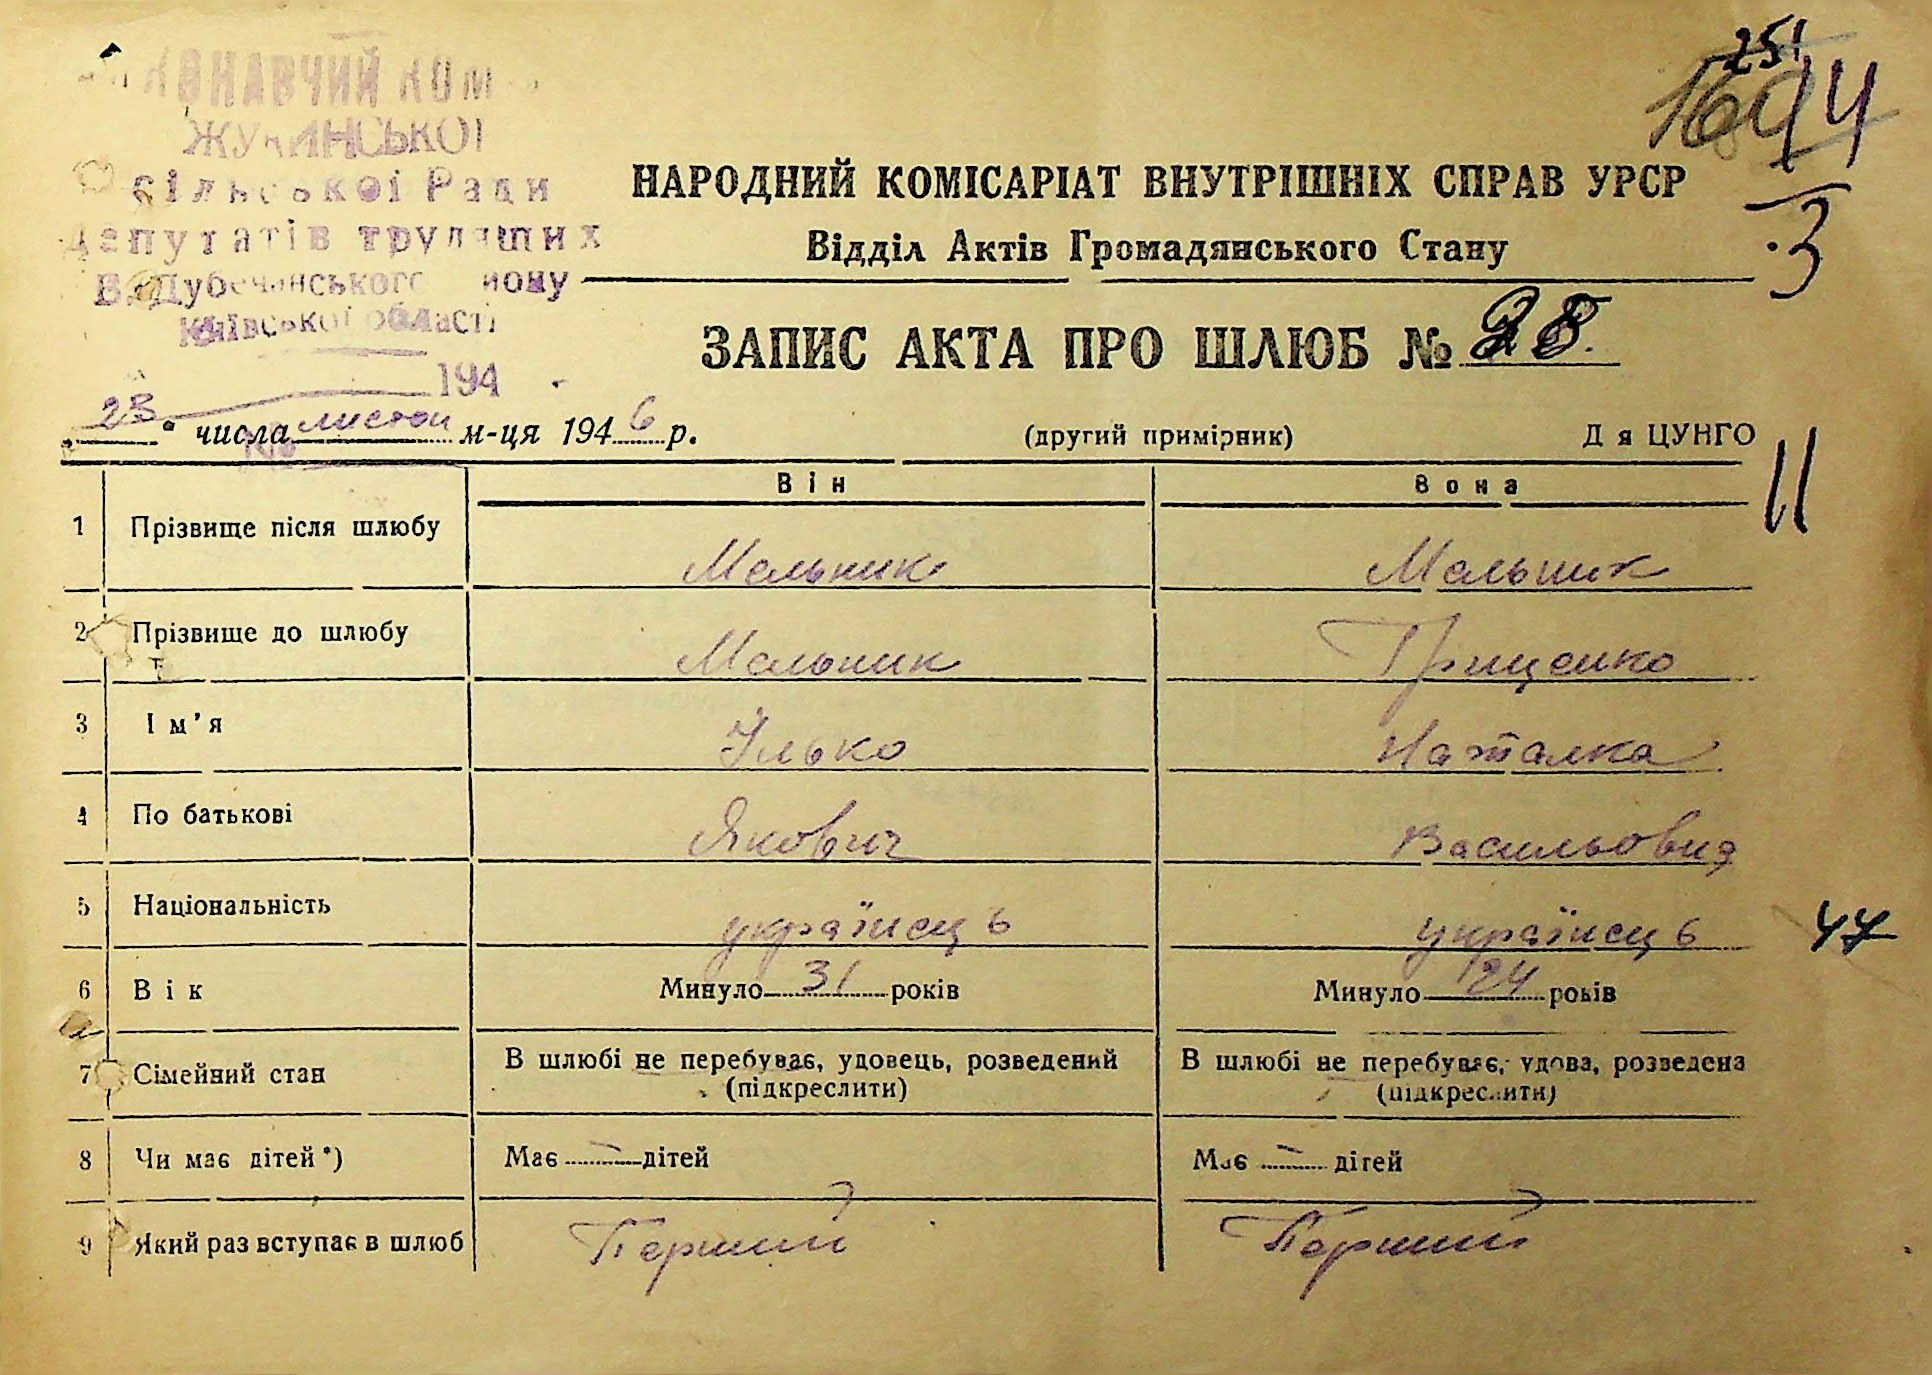 251
44
3
ЖУКИНСЬКОЇ
сільської Ради
депутатів трудящих
В. Дубечанського району
Київської області
194
НАРОДНИЙ КОМІСАРІАТ ВНУТРІШНІХ СПРАВ УРСР
Відділ Актів Громадянського Стану
ЗАПИС АКТА ПРО ШЛЮБ № 28
„23“ числа листоп м-ця 1946 р.
(другий примірник)
Для ЦУНГО
11
Він Вона
1 Прізвище після шлюбу Мельник Мельник
2 Прізвище до шлюбу Мельник Грищенко
3 Ім’я Ілько Наталка
4 По батькові Якович Васильовна
5 Національність українець українець
47
6 Вік Минуло 31 років Минуло 24 років
7 Сімейний стан В шлюбі не перебуває, удовець, розведений В шлюбі не перебуває, удова, розведена
(підкреслити) (підкреслити)
8 Чи має дітей*) Має – дітей Має – дітей
9 Який раз вступає в шлюб Перший Перший